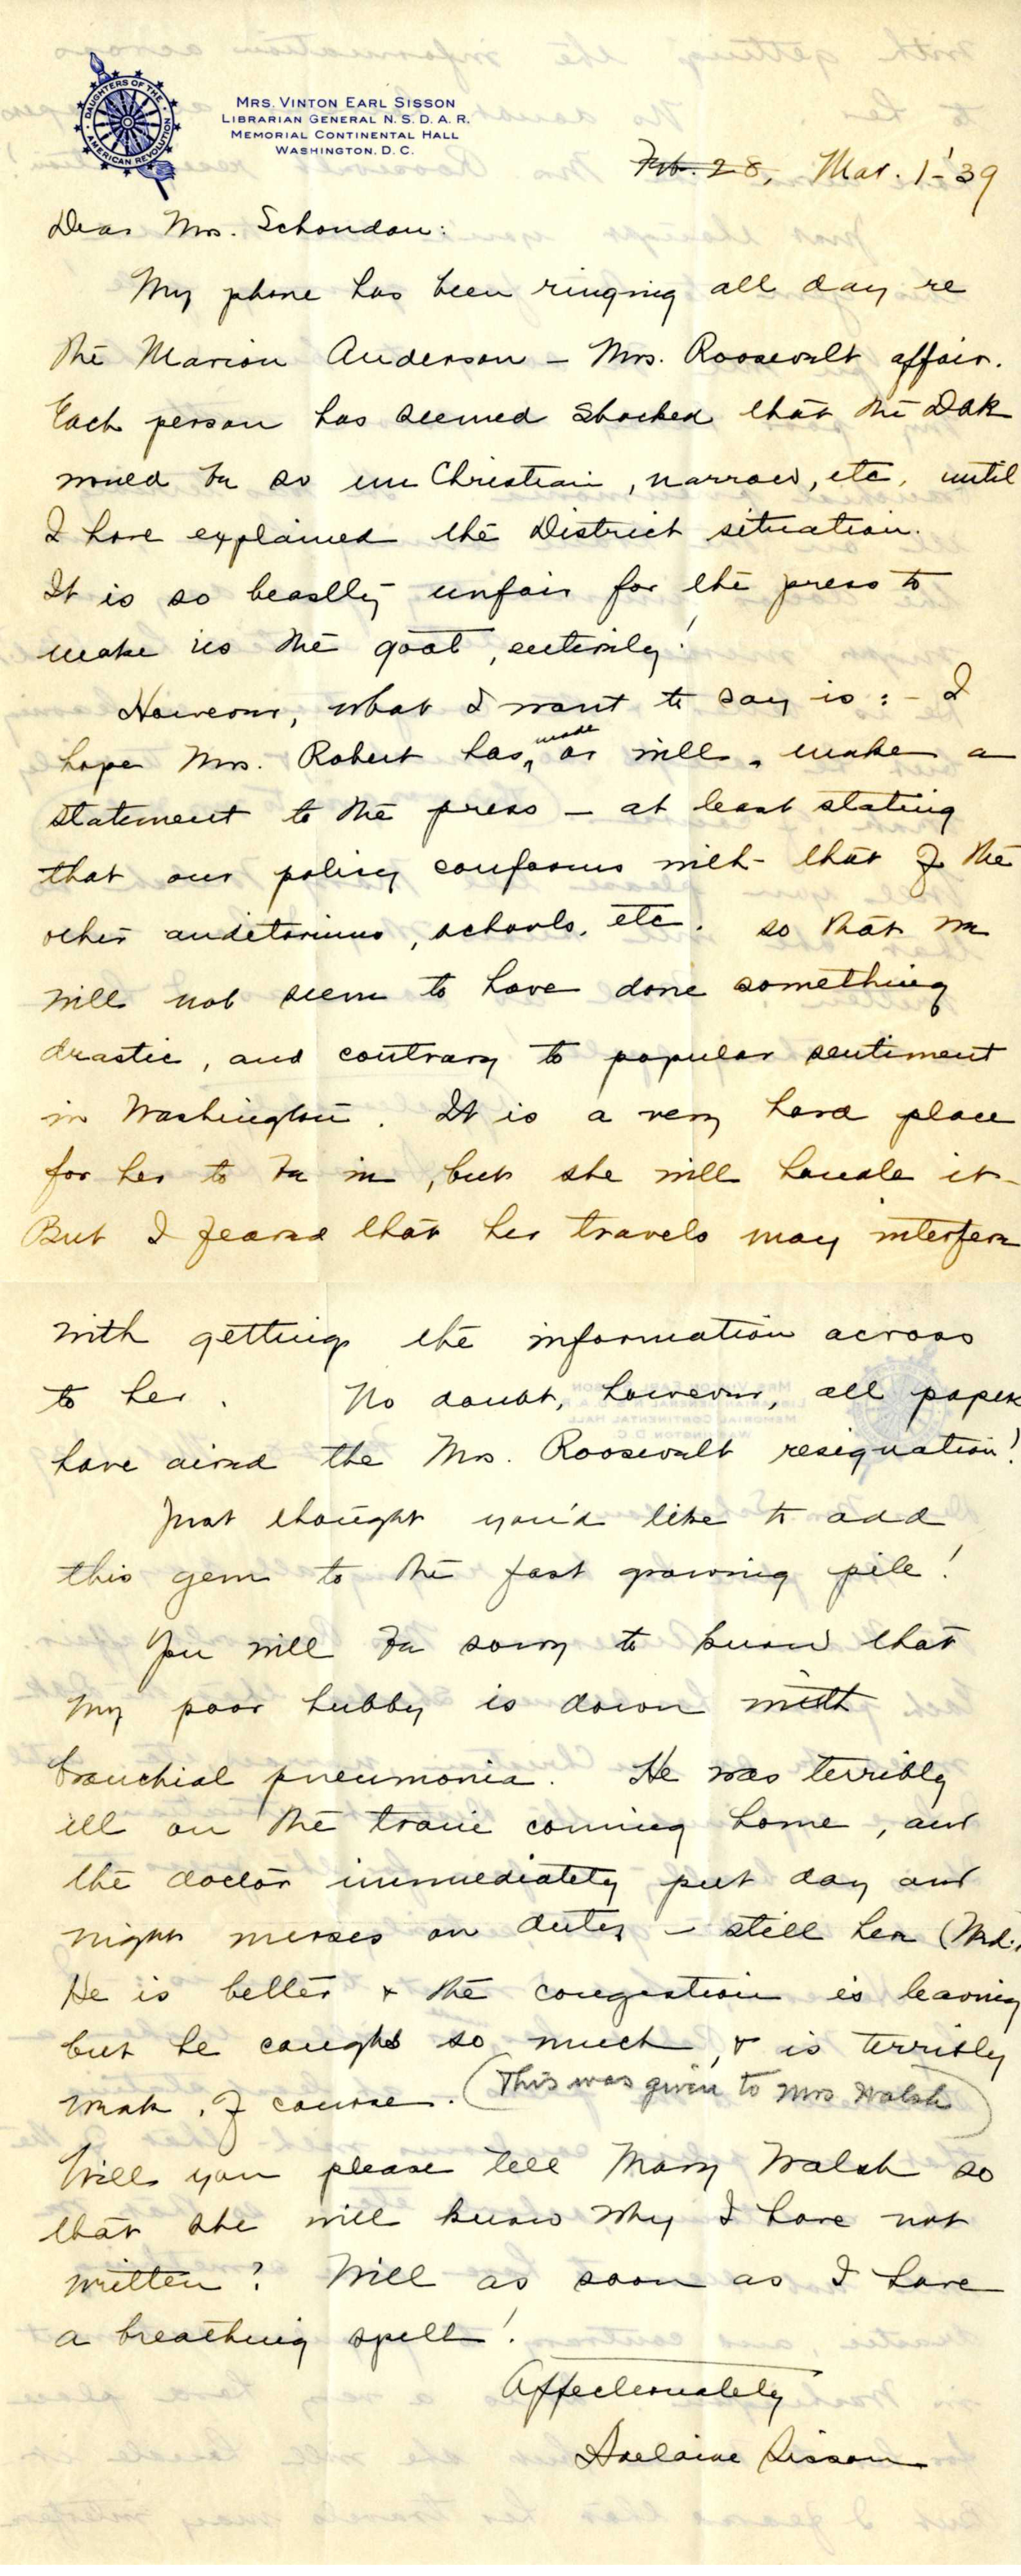 DAUGHTERS OF THE AMERICAN REVOLUTION
MRS. VINTON EARL SISSON
LIBRARIAN GENERAL N. S. D. A. R.
MEMORIAL CONTINENTAL HALL
WASHINGTON, D. C.
Feb. 28, Mar. 1 - '39
Dear Mrs. Schondau:
My phone has been ringing all day re
the Marion Anderson - Mrs. Roosevelt affair.
Each person has seemed shocked that the DAR
would be so un Christian, narrow, etc, until
I have explained the District situation.
It is so beastly unfair for the press to
make us the goat, entirely!
However, what I want to say is: - I
hope Mrs. Robert has made or will make a
statement to the press - at least stating
that our policy conforms with that of the
other auditoriums, schools, etc. so that we
will not seem to have done something
drastic, and contrary to popular sentiment
in Washington. It is a very hard place
for her to be in, but she will handle it -
But I feared that her travels may interfere
with getting the information across
to her. No doubt, however, all papers
have aired the Mrs. Roosevelt resignation!
Just thought you'd like to add
this gem to the fast growing pile!
You will be sorry to know that
my poor hubby is down with
bronchial pneumonia. He was terribly
ill on the train coming home, and
the doctor immediately put day and
night nurses on duty - still here (Wed.)
He is better & the congestion is leaving
but he coughs so much, & is terribly
weak, of course. (This was given to Mrs Walsh)
Will you please tell Mary Walsh so
that she will know why I have not
written? Will as soon as I have
a breathing spell!
Affectionately
Adelaide Sisson